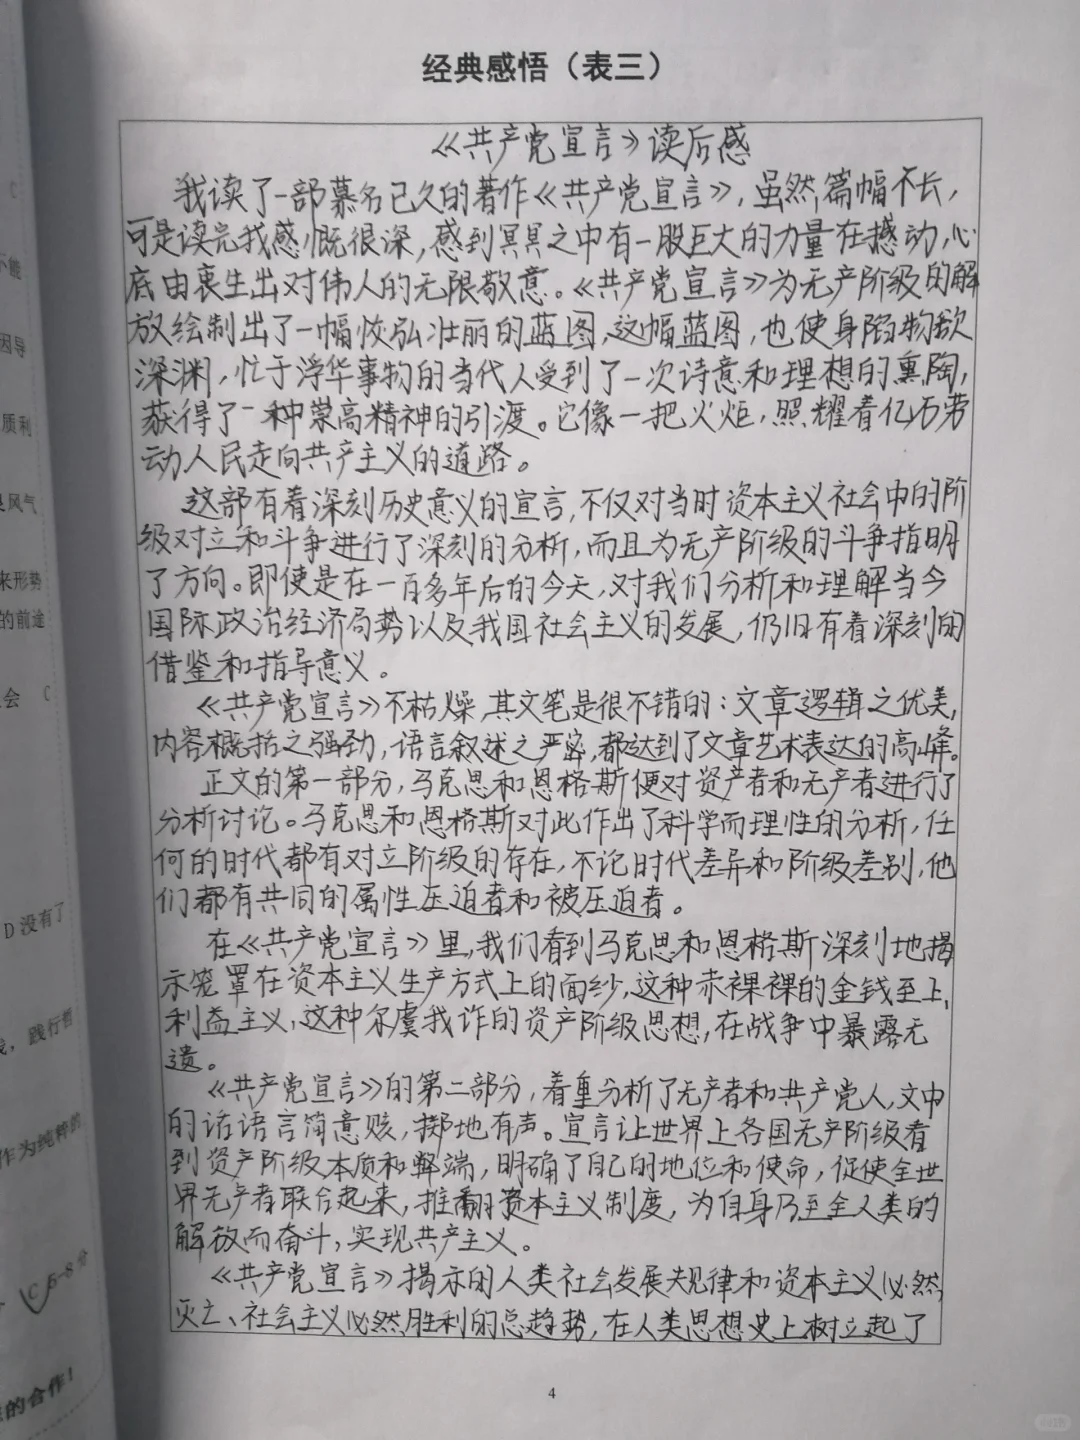 经典感悟（表三）
《共产党宣言》读后感
我读了一部慕名已久的著作《共产党宣言》，虽然篇幅不长，
可是读完我感慨很深，感到冥冥之中有一股巨大的力量在撼动，心
底由衷生出对伟人的无限敬意。《共产党宣言》为无产阶级的解
放绘制出了一幅恢弘壮丽的蓝图，这幅蓝图，也使身陷物欲
深渊，忙于浮华事物的当代人受到了一次诗意和理想的熏陶，
获得了一种崇高精神的引渡。它像一把火炬，照耀着亿万劳
动人民走向共产主义的道路。
这部有着深刻历史意义的宣言，不仅对当时资本主义社会中的阶
级对立和斗争进行了深刻的分析，而且为无产阶级的斗争指明
了方向。即使是在一百多年后的今天，对我们分析和理解当今
国际政治经济局势以及我国社会主义的发展，仍旧有着深刻的
借鉴和指导意义。
《共产党宣言》不枯燥，其文笔是很不错的：文章逻辑之优美，
内容概括之强劲，语言叙述之严密，都达到了文章艺术表达的高峰。
正文的第一部分，马克思和恩格斯便对资产者和无产者进行了
分析讨论。马克思和恩格斯对此作出了科学而理性的分析，任
何的时代都有对立阶级的存在，不论时代差异和阶级差别，他
们都有共同的属性压迫者和被压迫者。
在《共产党宣言》里，我们看到马克思和恩格斯深刻地揭
示笼罩在资本主义生产方式上的面纱，这种赤裸裸的金钱至上，
利益主义，这种尔虞我诈的资产阶级思想，在战争中暴露无
遗。
《共产党宣言》的第二部分，着重分析了无产者和共产党人，文中
的话语言简意赅，掷地有声。宣言让世界上各国无产阶级看
到资产阶级本质和弊端，明确了自己的地位和使命，促使全世
界无产者联合起来，推翻资本主义制度，为自身乃至全人类的
解放而奋斗，实现共产主义。
《共产党宣言》揭示的人类社会发展规律和资本主义必然
灭亡、社会主义必然胜利的总趋势，在人类思想史上树立起了
4
C
不能
因导
质利
风气
来形势
的前途
会 C
D 没有了
践行哲
作为纯粹的
C 6-8分
的合作！